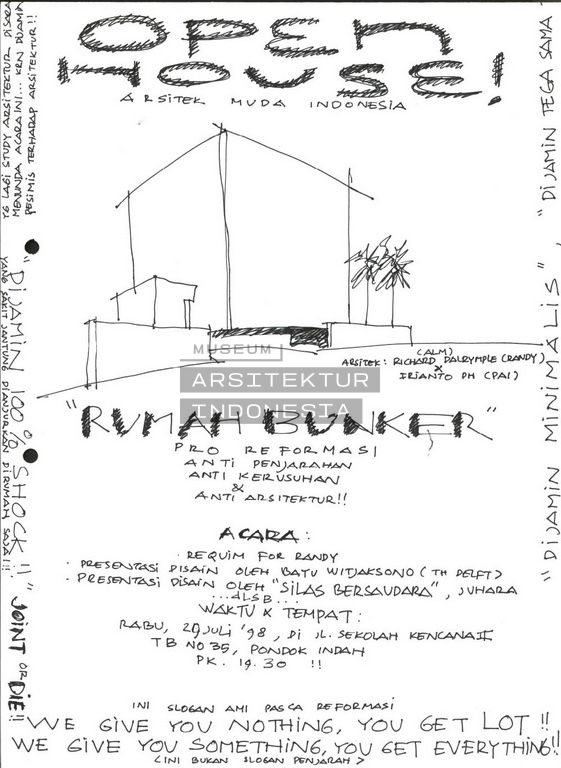 OPEN
HOUSE!
ARSITEK MUDA INDONESIA
YG LAGI STUDY ARSITEKTUR DISARA
MENUNDA ACARA INI... KRN DIJAMIN
PESIMIS TERHADAP ARSITEKTUR!!
"DIJAMIN 100% SHOCK!!"
YANG SAKIT JANTUNG DIANJURKAN DIRUMAH SAJA!!!
JOINT OR DIE!!
"DIJAMIN MINIMALIS", "DIJAMIN TEGA SAMA
MUSEUM
ARSITEKTUR
INDONESIA
(ALM)
ARSITEK: RICHARD DALRYMPLE (RANDY)
X
IRIANTO PH (PAI)
"RUMAH BUNKER"
PRO REFORMASI
ANTI PENJARAHAN
ANTI KERUSUHAN
&
ANTI ARSITEKTUR!!
ACARA:
· REQUIM FOR RANDY
· PRESENTASI DISAIN OLEH BAYU WITJAKSONO (TH DELFT)
· PRESENTASI DISAIN OLEH "SILAS BERSAUDARA", JUHARA
...dLSB...
WAKTU X TEMPAT:
RABU, 29 JULI '98, DI JL. SEKOLAH KENCANA II
TB NO 35, PONDOK INDAH
PK. 19.30 !!
INI SLOGAN AMI PASCA REFORMASI
WE GIVE YOU NOTHING, YOU GET LOT!!
WE GIVE YOU SOMETHING, YOU GET EVERYTHING!!
(INI BUKAN SLOGAN PENJARAH)